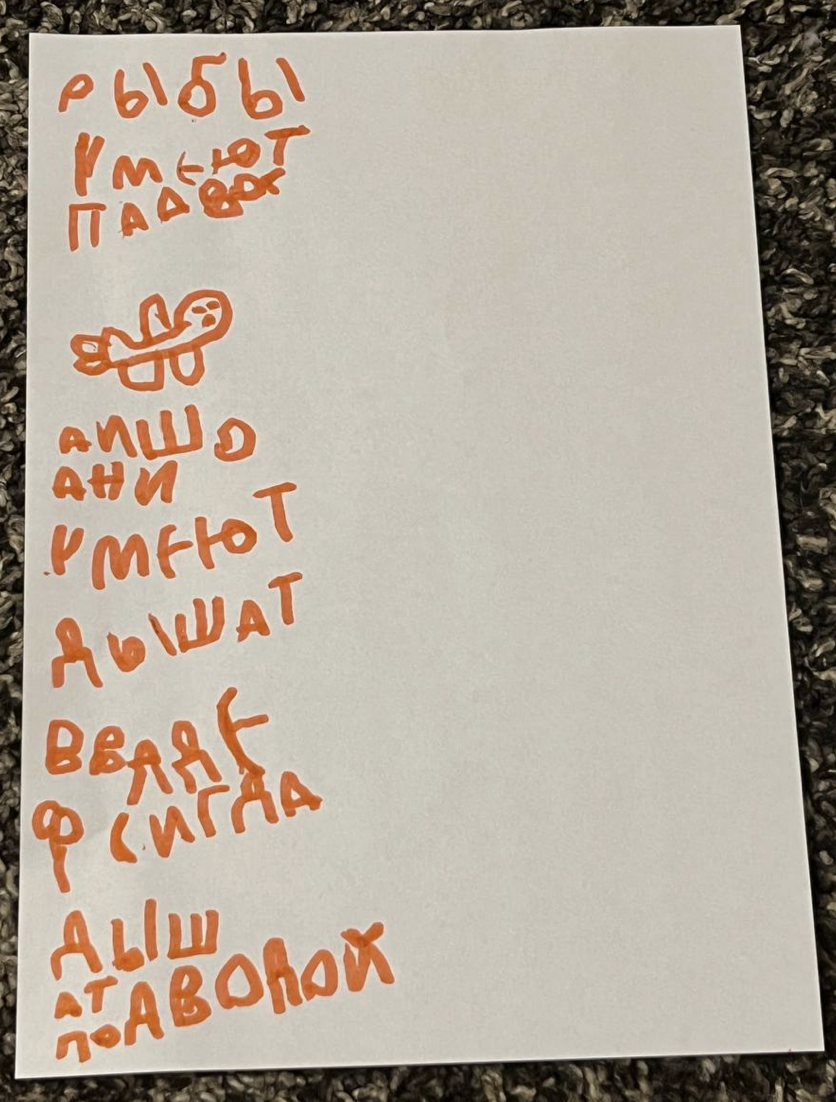 РЫБЫ
УМЕЮТ
ПАДВОХ
АИШО
АНИ
УМЕЮТ
ДЫШАТ
ВВАДЕ
ФСИГДА
ДЫШ
АТ
ПОДВОДОЙ